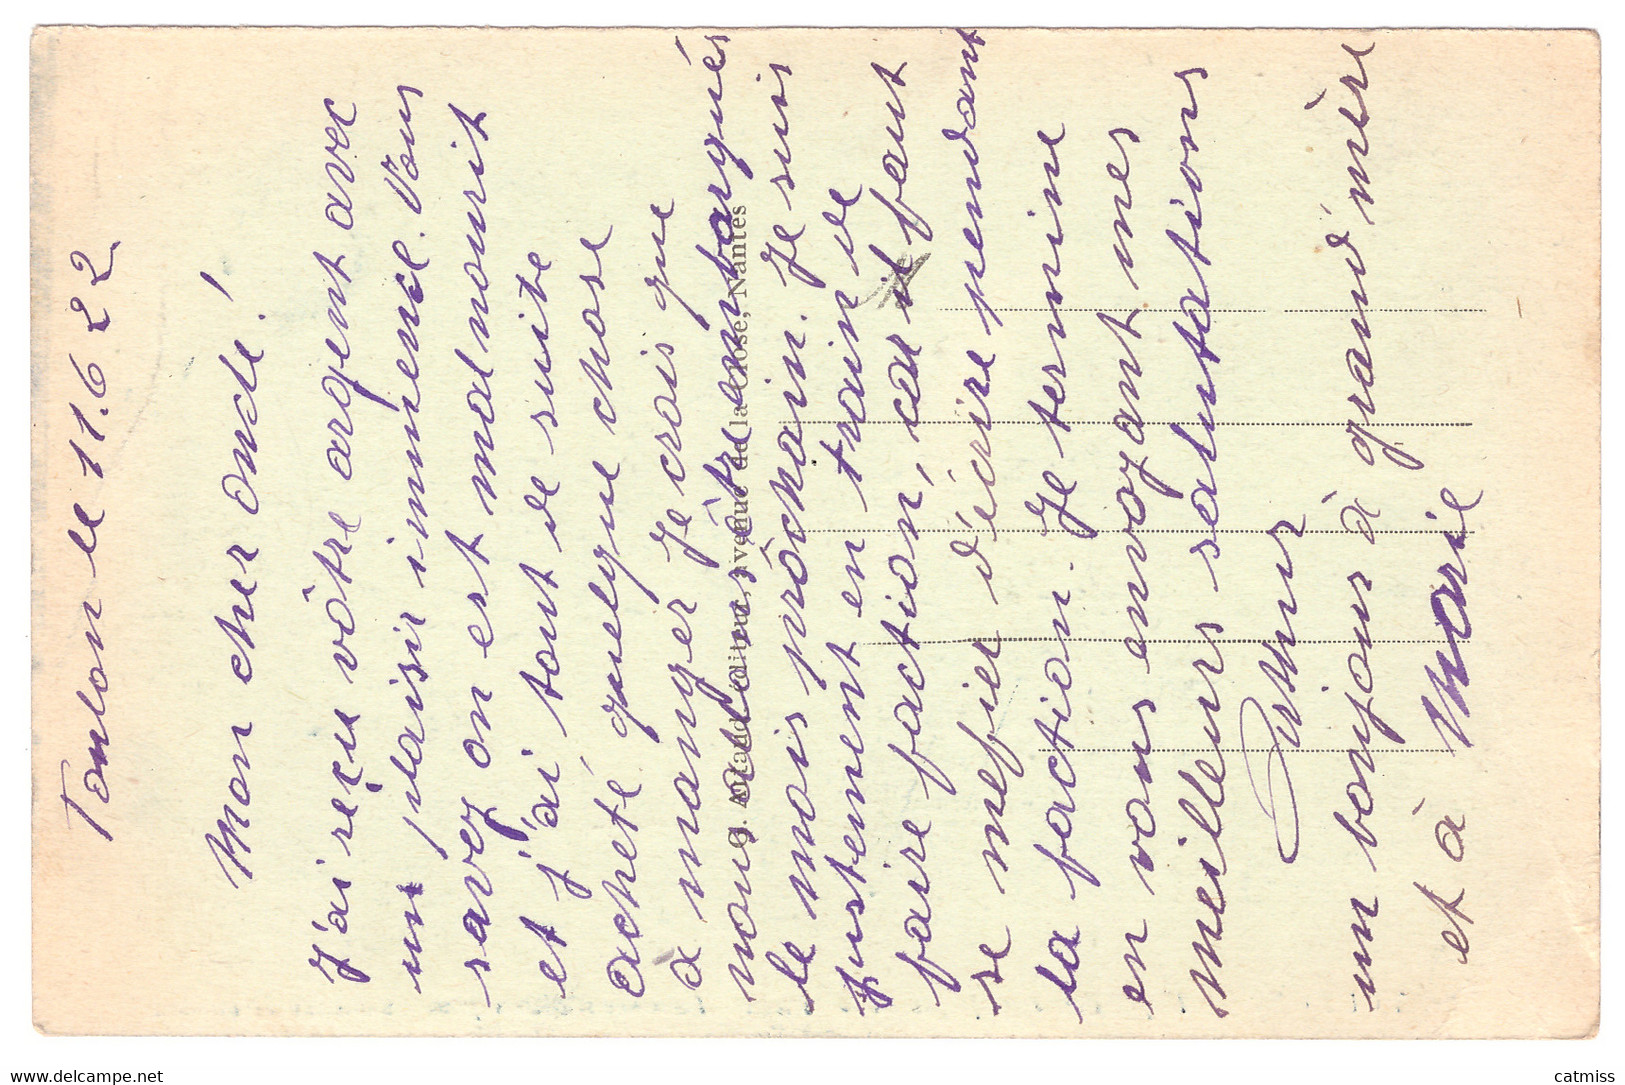 Toulon le 11.6 22
Mon cher oncle!
J'ai reçu vôtre argent avec
un plaisir immence. Vous
savez on est mal nourit
et j'ai tout de suite
acheté quelque chose
a manger Je crois que
nous allons être embarqués
le mois prôchain. Je suis
justement en train de
faire faction, car il faut
se mefier d'écrire pendant
la faction. Je termine
en vous envoyant mes
meilleurs salutations
Arthur
un bonjour à grand'mère
et à Marie
éditeur, avenue de la Close, Nantes
www.delcampe.net
catmiss